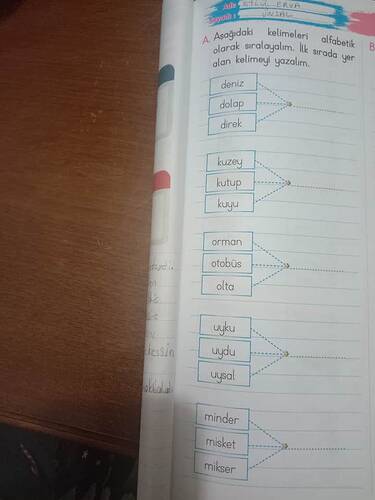 Adı: EYLÜL ERVA
Soyadı: ÜNSAL
A. Aşağıdaki kelimeleri alfabetik
olarak sıralayalım. İlk sırada yer
alan kelimeyi yazalım.
B
deniz
dolap
direk
kuzey
kutup
kuyu
orman
otobüs
olta
uyku
uydu
uysal
minder
misket
mikser